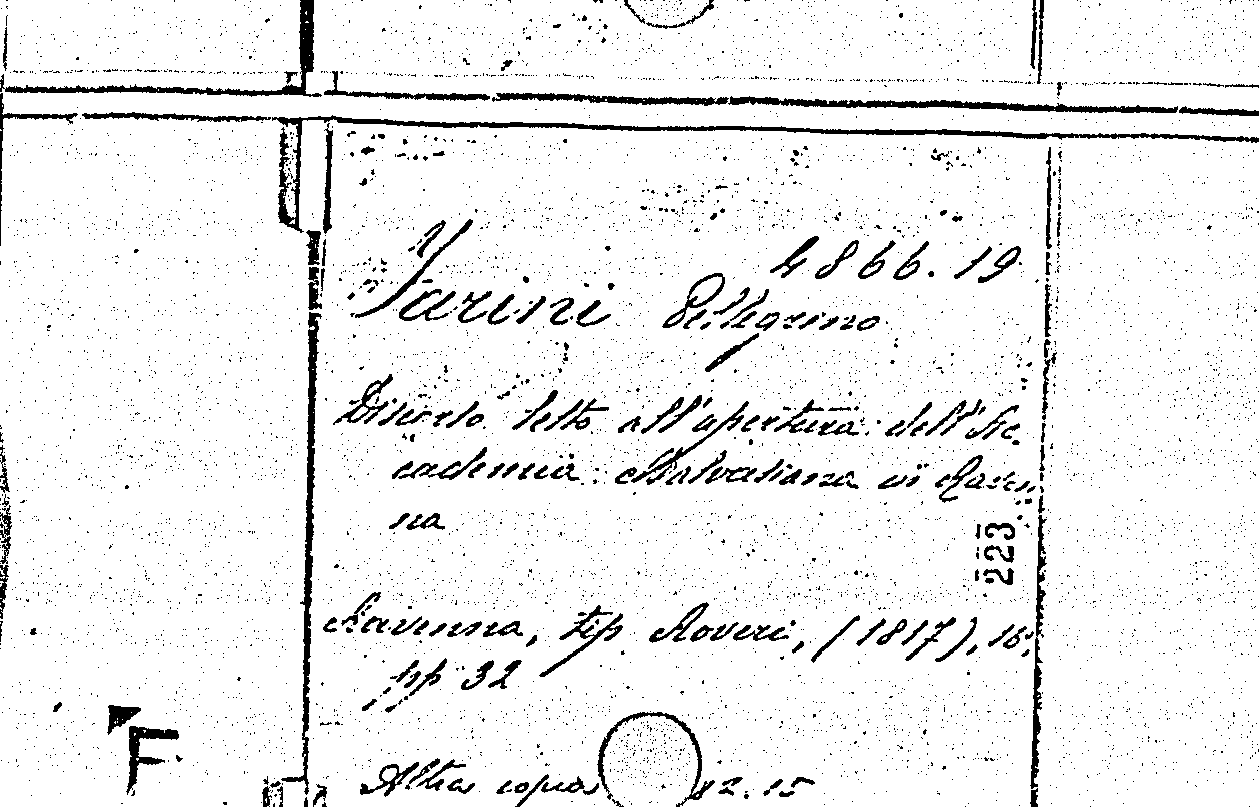 4866.19
Farini Pellegrino
Discorso letto all'apertura dell'Ac-
cademia in Raven
na
223
Ravenna, tip. Roveri, (1817), 16°,
pp 32
F
Altra copia 12.15